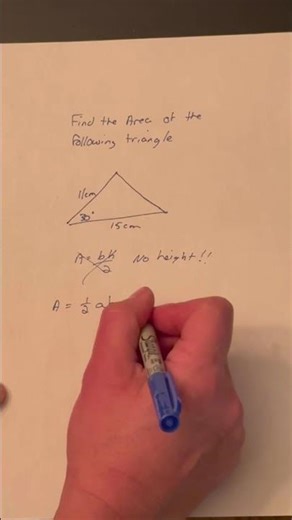 Find the Area of the
following triangle
11cm
30°
15cm
A = bh/2 No height!!
A = 1/2 ab